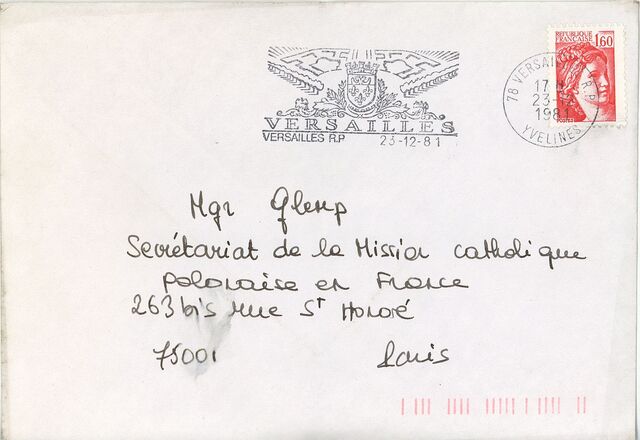 RÉPUBLIQUE FRANÇAISE 1,60
78 VERSAILLES R.P.
17 H
23-12
1981
YVELINES
VERSAILLES
VERSAILLES R.P 23-12-81
Mgr Glemp
Secrétariat de la Mission catholique
polonaise en France
263 bis rue St Honoré
75001 Paris